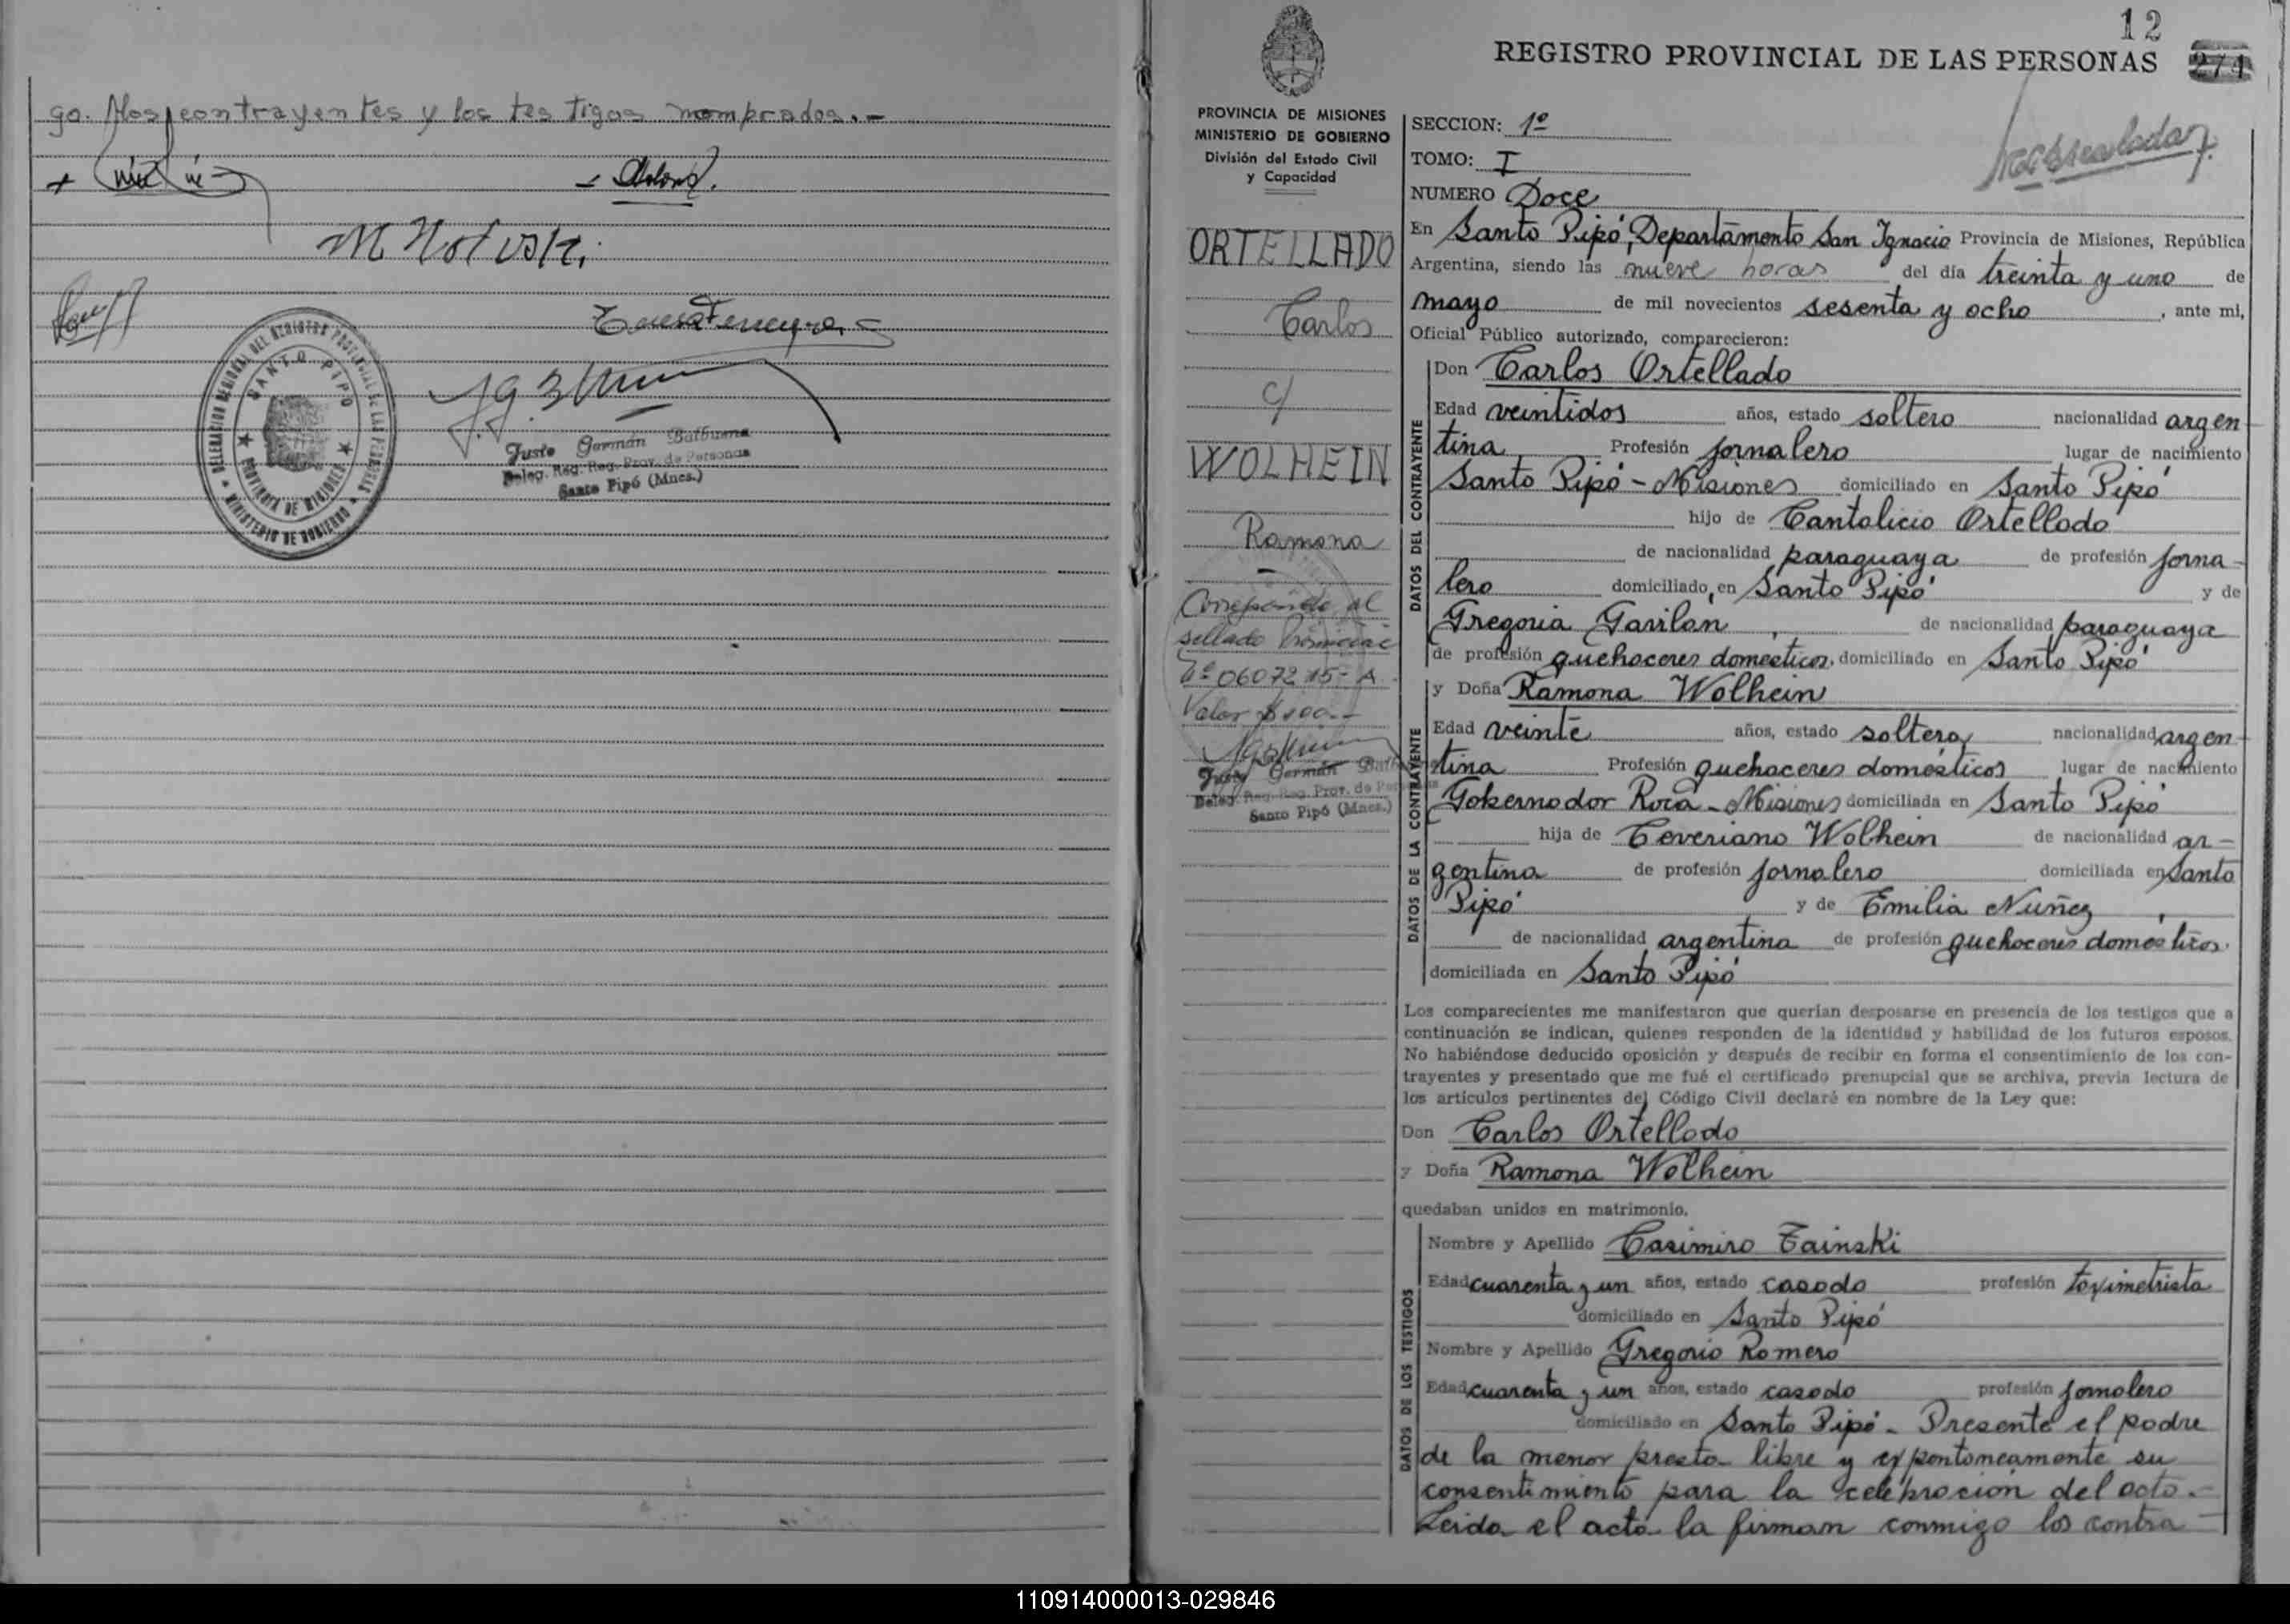 go. Nos contrayentes y los testigos nombrados.-
DELEGACION REGIONAL DEL REGISTRO PROVINCIAL DE LAS PERSONAS
SANTO PIPO
PROVINCIA DE MISIONES
MINISTERIO DE GOBIERNO
Justo Germán Balbuena
Deleg. Reg. Reg. Prov. de Personas
Santo Pipó (Mnes.)
12
REGISTRO PROVINCIAL DE LAS PERSONAS
274
PROVINCIA DE MISIONES
MINISTERIO DE GOBIERNO
División del Estado Civil
y Capacidad
ORTELLADO
Carlos
c/
WOLHEIN
Ramona
Corresponde al
sellado Provincial
Nº 0607215-A
Valor $100.-
Justo Germán
Deleg. Reg. Reg. Prov. de
Santo Pipó (Mnes.)
SECCION: 1º
TOMO: I
NUMERO Doce
En Santo Pipó, Departamento San Ignacio Provincia de Misiones, República
Argentina, siendo las nueve horas del día treinta y uno de
mayo de mil novecientos sesenta y ocho, ante mi,
Oficial Público autorizado, comparecieron:
DATOS DEL CONTRAYENTE
Don Carlos Ortellado
Edad veintidos años, estado soltero nacionalidad argen
tina Profesión jornalero lugar de nacimiento
Santo Pipó - Misiones domiciliado en Santo Pipó
hijo de Cantalicio Ortellado
de nacionalidad paraguaya de profesión jorna-
lero domiciliado en Santo Pipó y de
Gregoria Gavilan, de nacionalidad paraguaya
de profesión quehaceres domesticos, domiciliado en Santo Pipó
DATOS DE LA CONTRAYENTE
y Doña Ramona Wolhein
Edad veinte años, estado soltera nacionalidad argen-
tina Profesión quehaceres domésticos lugar de nacimiento
Gobernador Roca - Misiones domiciliada en Santo Pipó
hija de Ceveriano Wolhein de nacionalidad ar-
gentina de profesión jornalero domiciliada en Santo
Pipó y de Emilia Nuñez,
de nacionalidad argentina de profesión quehaceres domésticos.
domiciliada en Santo Pipó
Los comparecientes me manifestaron que querían desposarse en presencia de los testigos que a
continuación se indican, quienes responden de la identidad y habilidad de los futuros esposos.
No habiéndose deducido oposición y después de recibir en forma el consentimiento de los con-
trayentes y presentado que me fué el certificado prenupcial que se archiva, previa lectura de
los artículos pertinentes del Código Civil declaré en nombre de la Ley que:
Don Carlos Ortellado
y Doña Ramona Wolhein
quedaban unidos en matrimonio.
DATOS DE LOS TESTIGOS
Nombre y Apellido Casimiro Zainski
Edad cuarenta y un años, estado casado profesión taximetrista
domiciliado en Santo Pipó
Nombre y Apellido Gregorio Romero
Edad cuarenta y un años, estado casado profesión jornalero
domiciliado en Santo Pipó - Presente el padre
de la menor presta libre y expontaneamente su
consentimiento para la celebración del acto.-
Leida el acta la firman conmigo los contra-
110914000013-029846